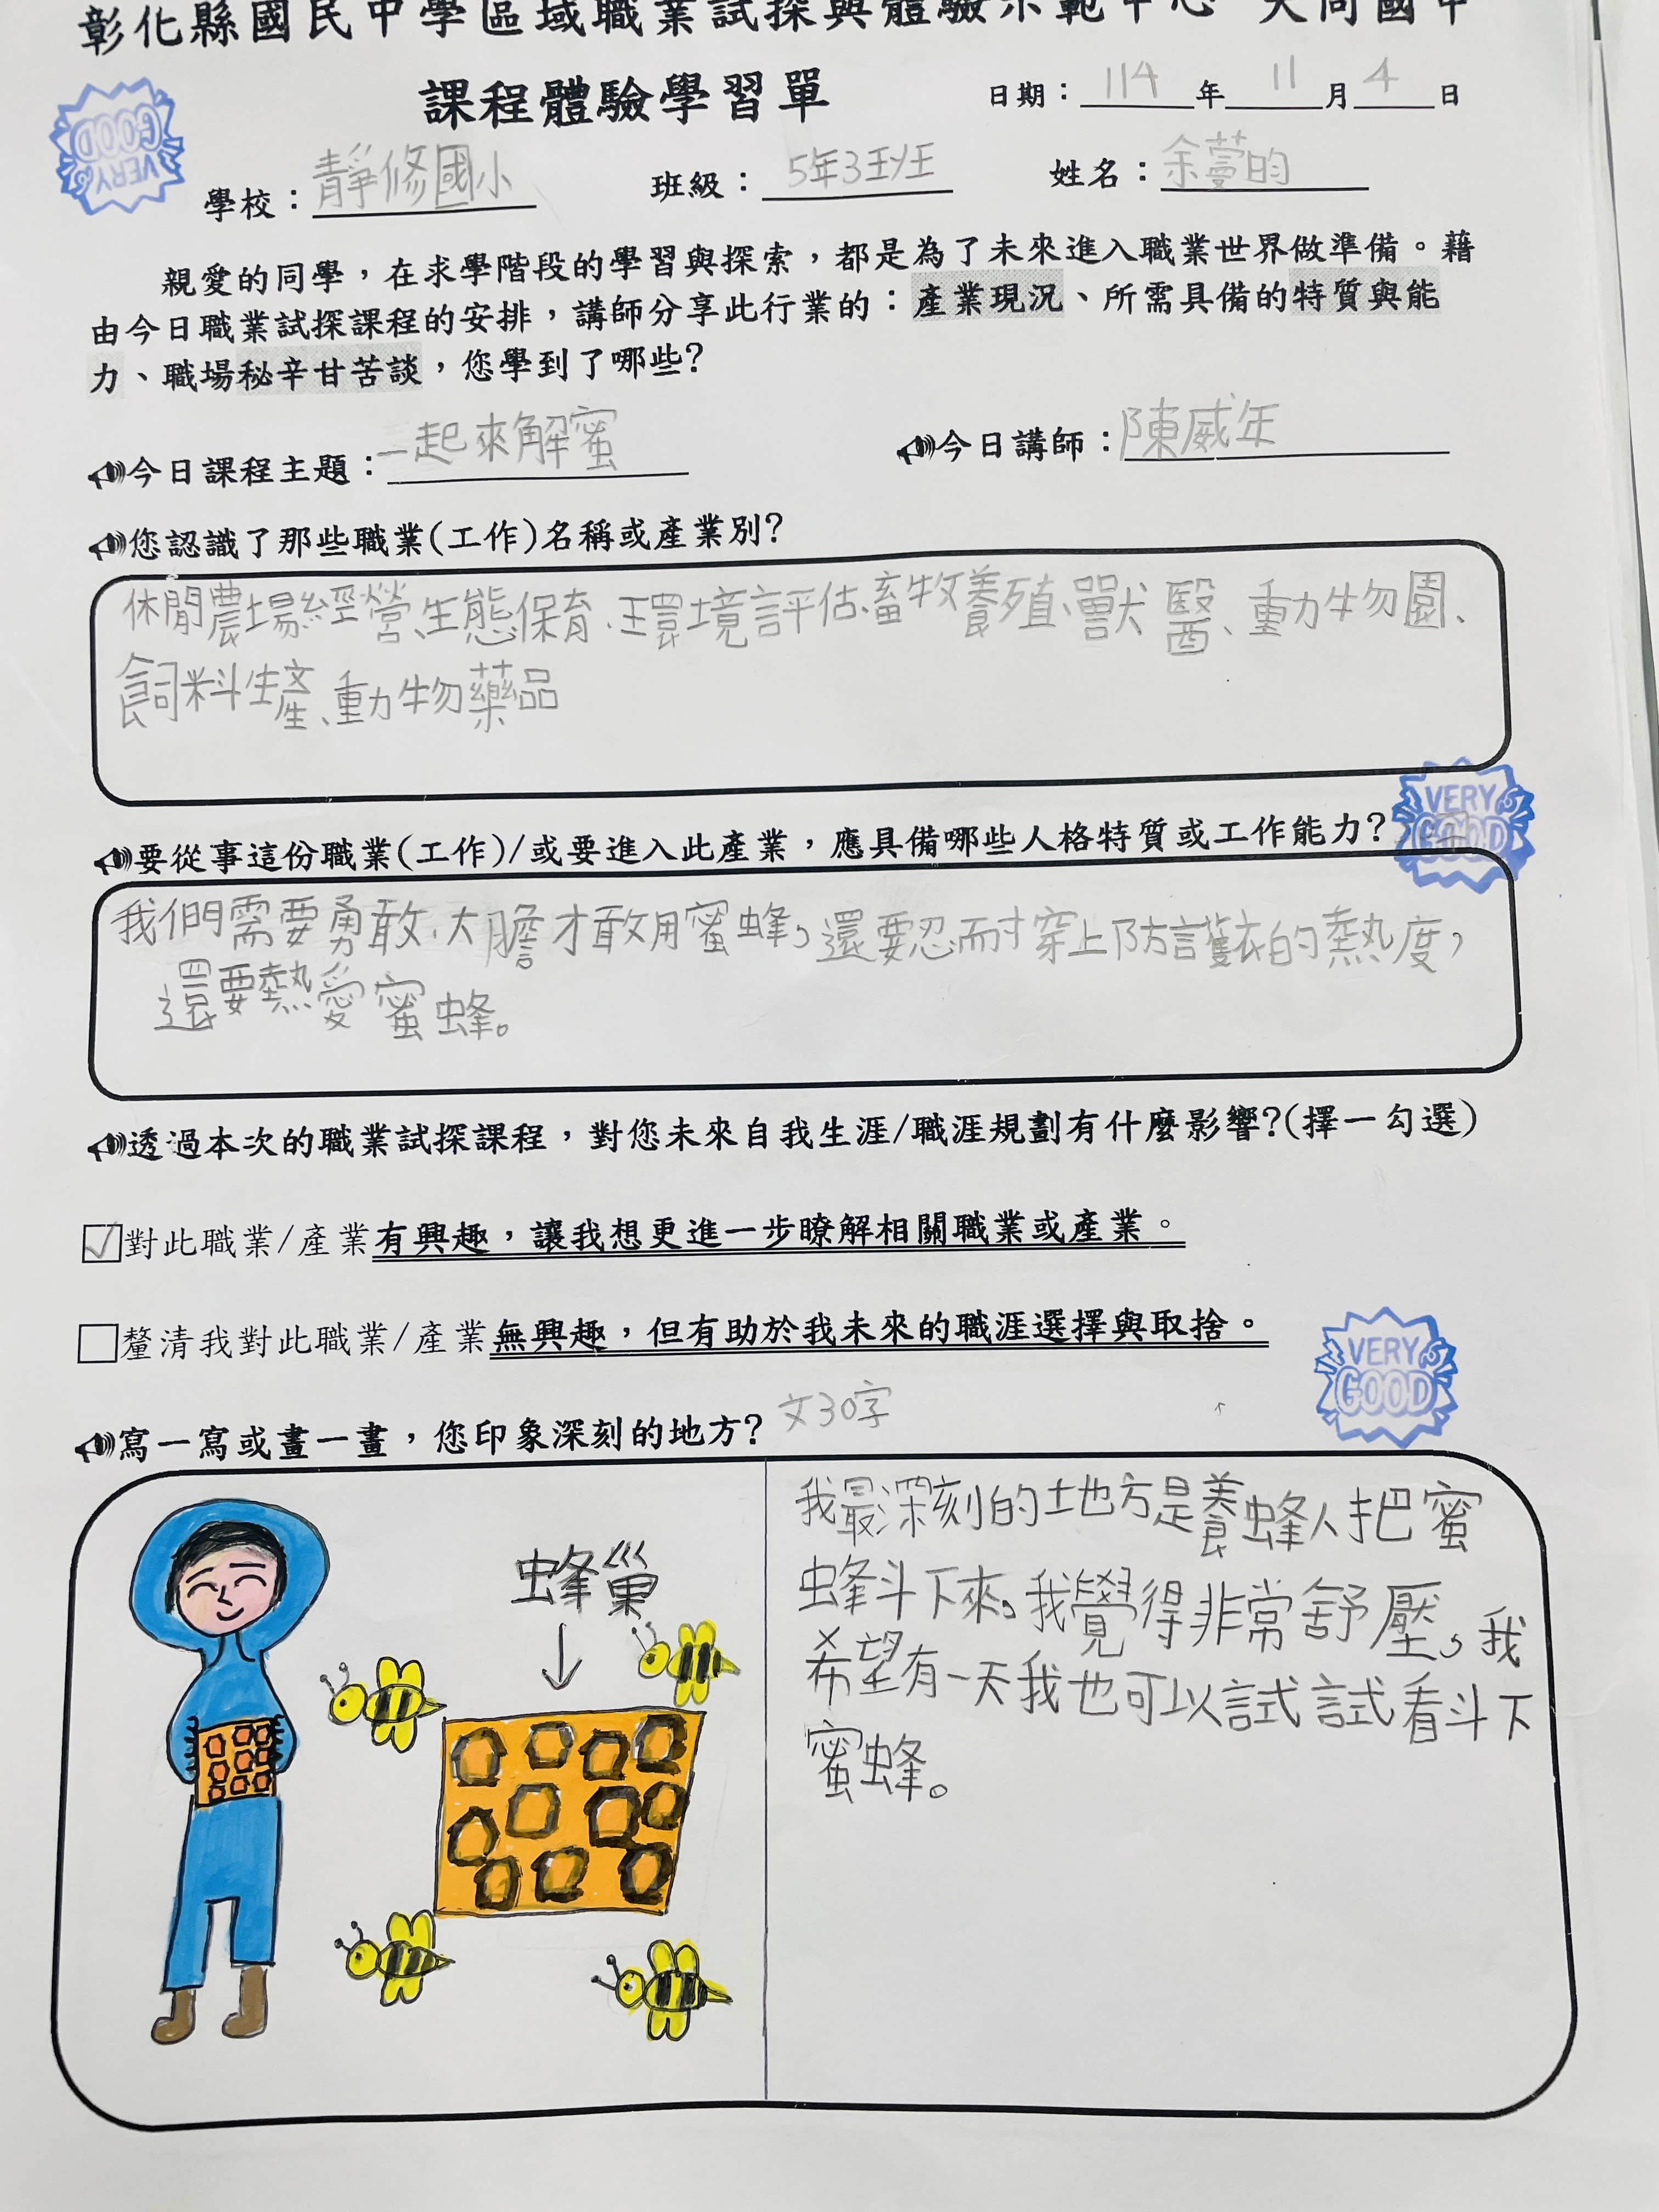 彰化縣國民中學區域職業試探與體驗示範中心 大同國中
課程體驗學習單
日期：114年11月4日
VERY GOOD
學校：靜修國小 班級：5年3班 姓名：余蔓昀
親愛的同學，在求學階段的學習與探索，都是為了未來進入職業世界做準備。藉
由今日職業試探課程的安排，講師分享此行業的：產業現況、所需具備的特質與能
力、職場秘辛甘苦談，您學到了哪些?
今日課程主題：一起來解蜜 今日講師：陳威年
您認識了那些職業(工作)名稱或產業別?
休閒農場經營、生態保育、環境評估、畜牧養殖、獸醫、動物園、
飼料生產、動物藥品
VERY GOOD
要從事這份職業(工作)/或要進入此產業，應具備哪些人格特質或工作能力?
我們需要勇敢、大膽才敢用蜜蜂，還要忍耐穿上防護衣的熱度，
還要熱愛蜜蜂。
透過本次的職業試探課程，對您未來自我生涯/職涯規劃有什麼影響?(擇一勾選)
☑對此職業/產業有興趣，讓我想更進一步瞭解相關職業或產業。
□釐清我對此職業/產業無興趣，但有助於我未來的職涯選擇與取捨。
VERY GOOD
寫一寫或畫一畫，您印象深刻的地方? 文30字
蜂巢
我最深刻的地方是養蜂人把蜜
蜂斗下來，我覺得非常舒壓，我
希望有一天我也可以試試看斗下
蜜蜂。